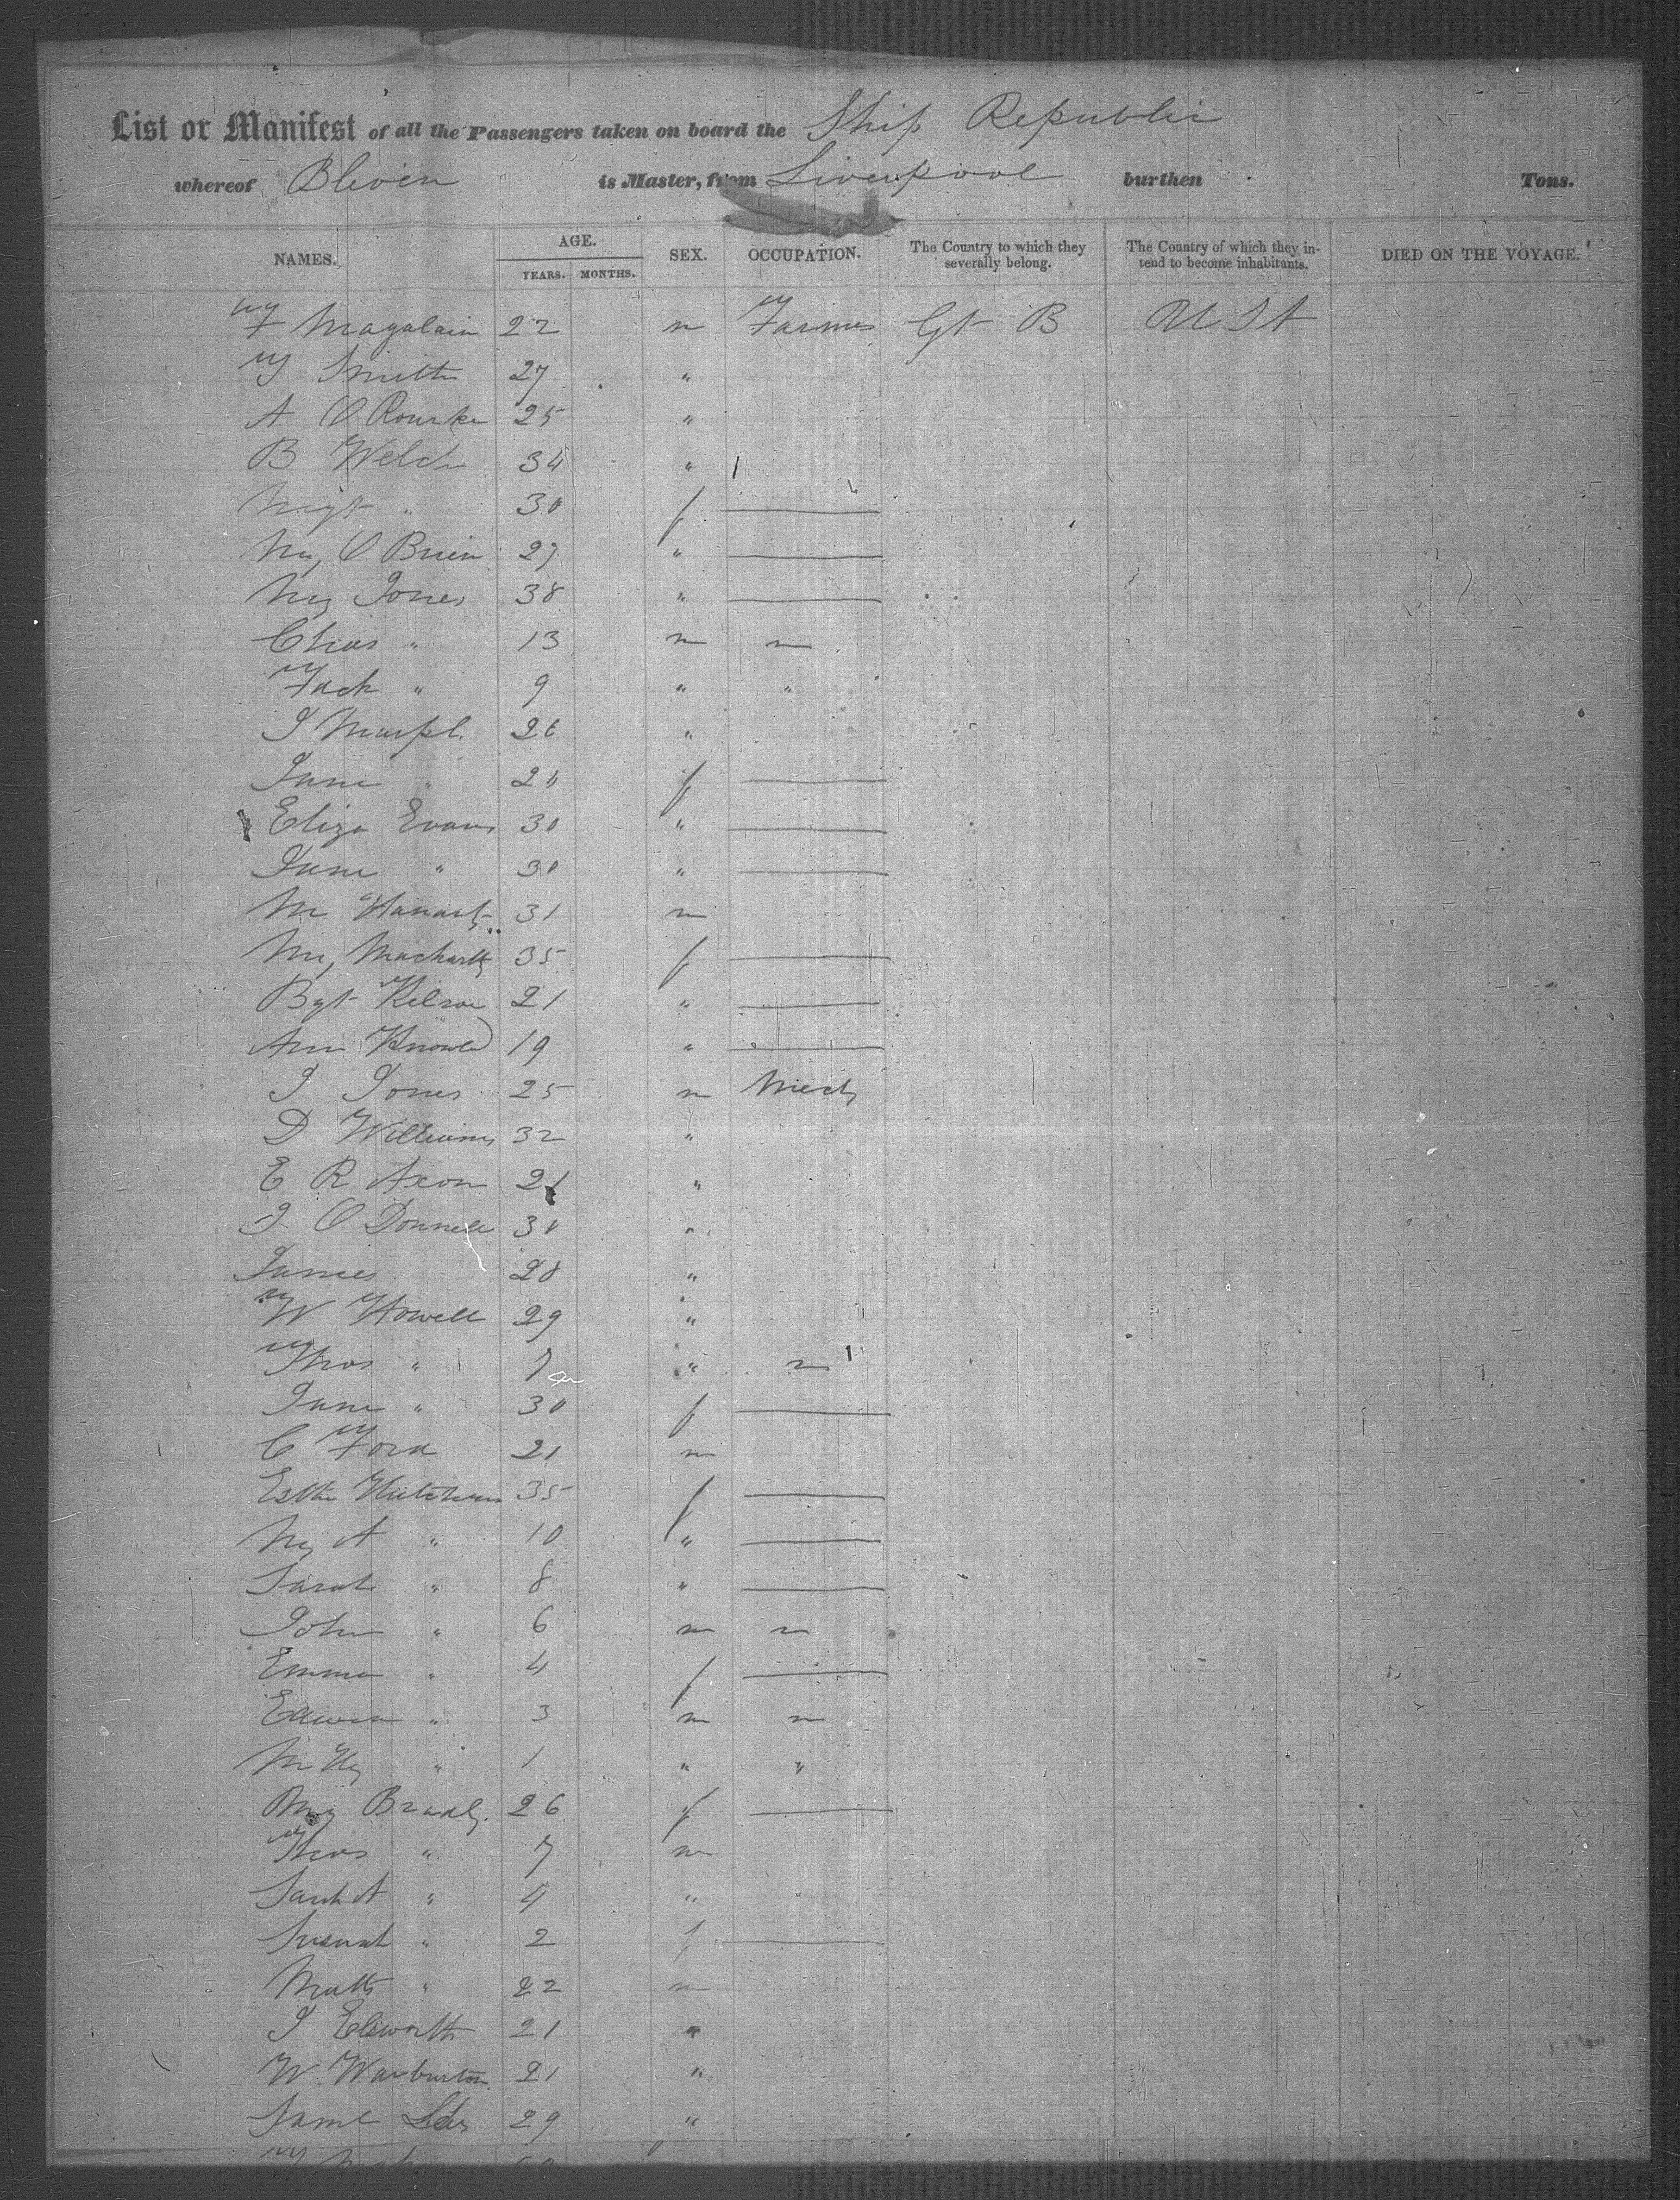 List or Manifest of all the Passengers taken on board the Ship Republic
whereof Bliven is Master, from Liverpool burthen Tons.
NAMES. AGE. YEARS. MONTHS. SEX. OCCUPATION. The Country to which they severally belong. The Country of which they intend to become inhabitants. DIED ON THE VOYAGE.
F 22 m Farmer Gt B U S A
Smith 27 "
A O Rourke 25 "
B Welch 34 "
Mgt " 30 f
My O Brien 27 "
My Jones 38 "
Chas " 13 m
" 9 " "
J 26 "
Jane " f
Eliza Evans 30 "
Jane " 30 "
M 31 m
My 35 f
Bgt 21 "
Ann 19 "
J Jones 25 m Mech
D Williams 32 "
E R Axon 21 "
J O Donnell 30 "
James 28 "
W Howell 29 "
Thos " 7 "
Jane " 30 f
C Ford 21 m
Esther 35 f
My A " 10 "
Sarah " 8 "
John " 6 m
Emma " 4 f
Edwin " 3 m
" 1 " "
My 26 f
Thos " 7 m
Sarah A " 4 "
" 2 f
Matt " 22 m
J 21 "
W. Warburton 21 "
Saml 29 "